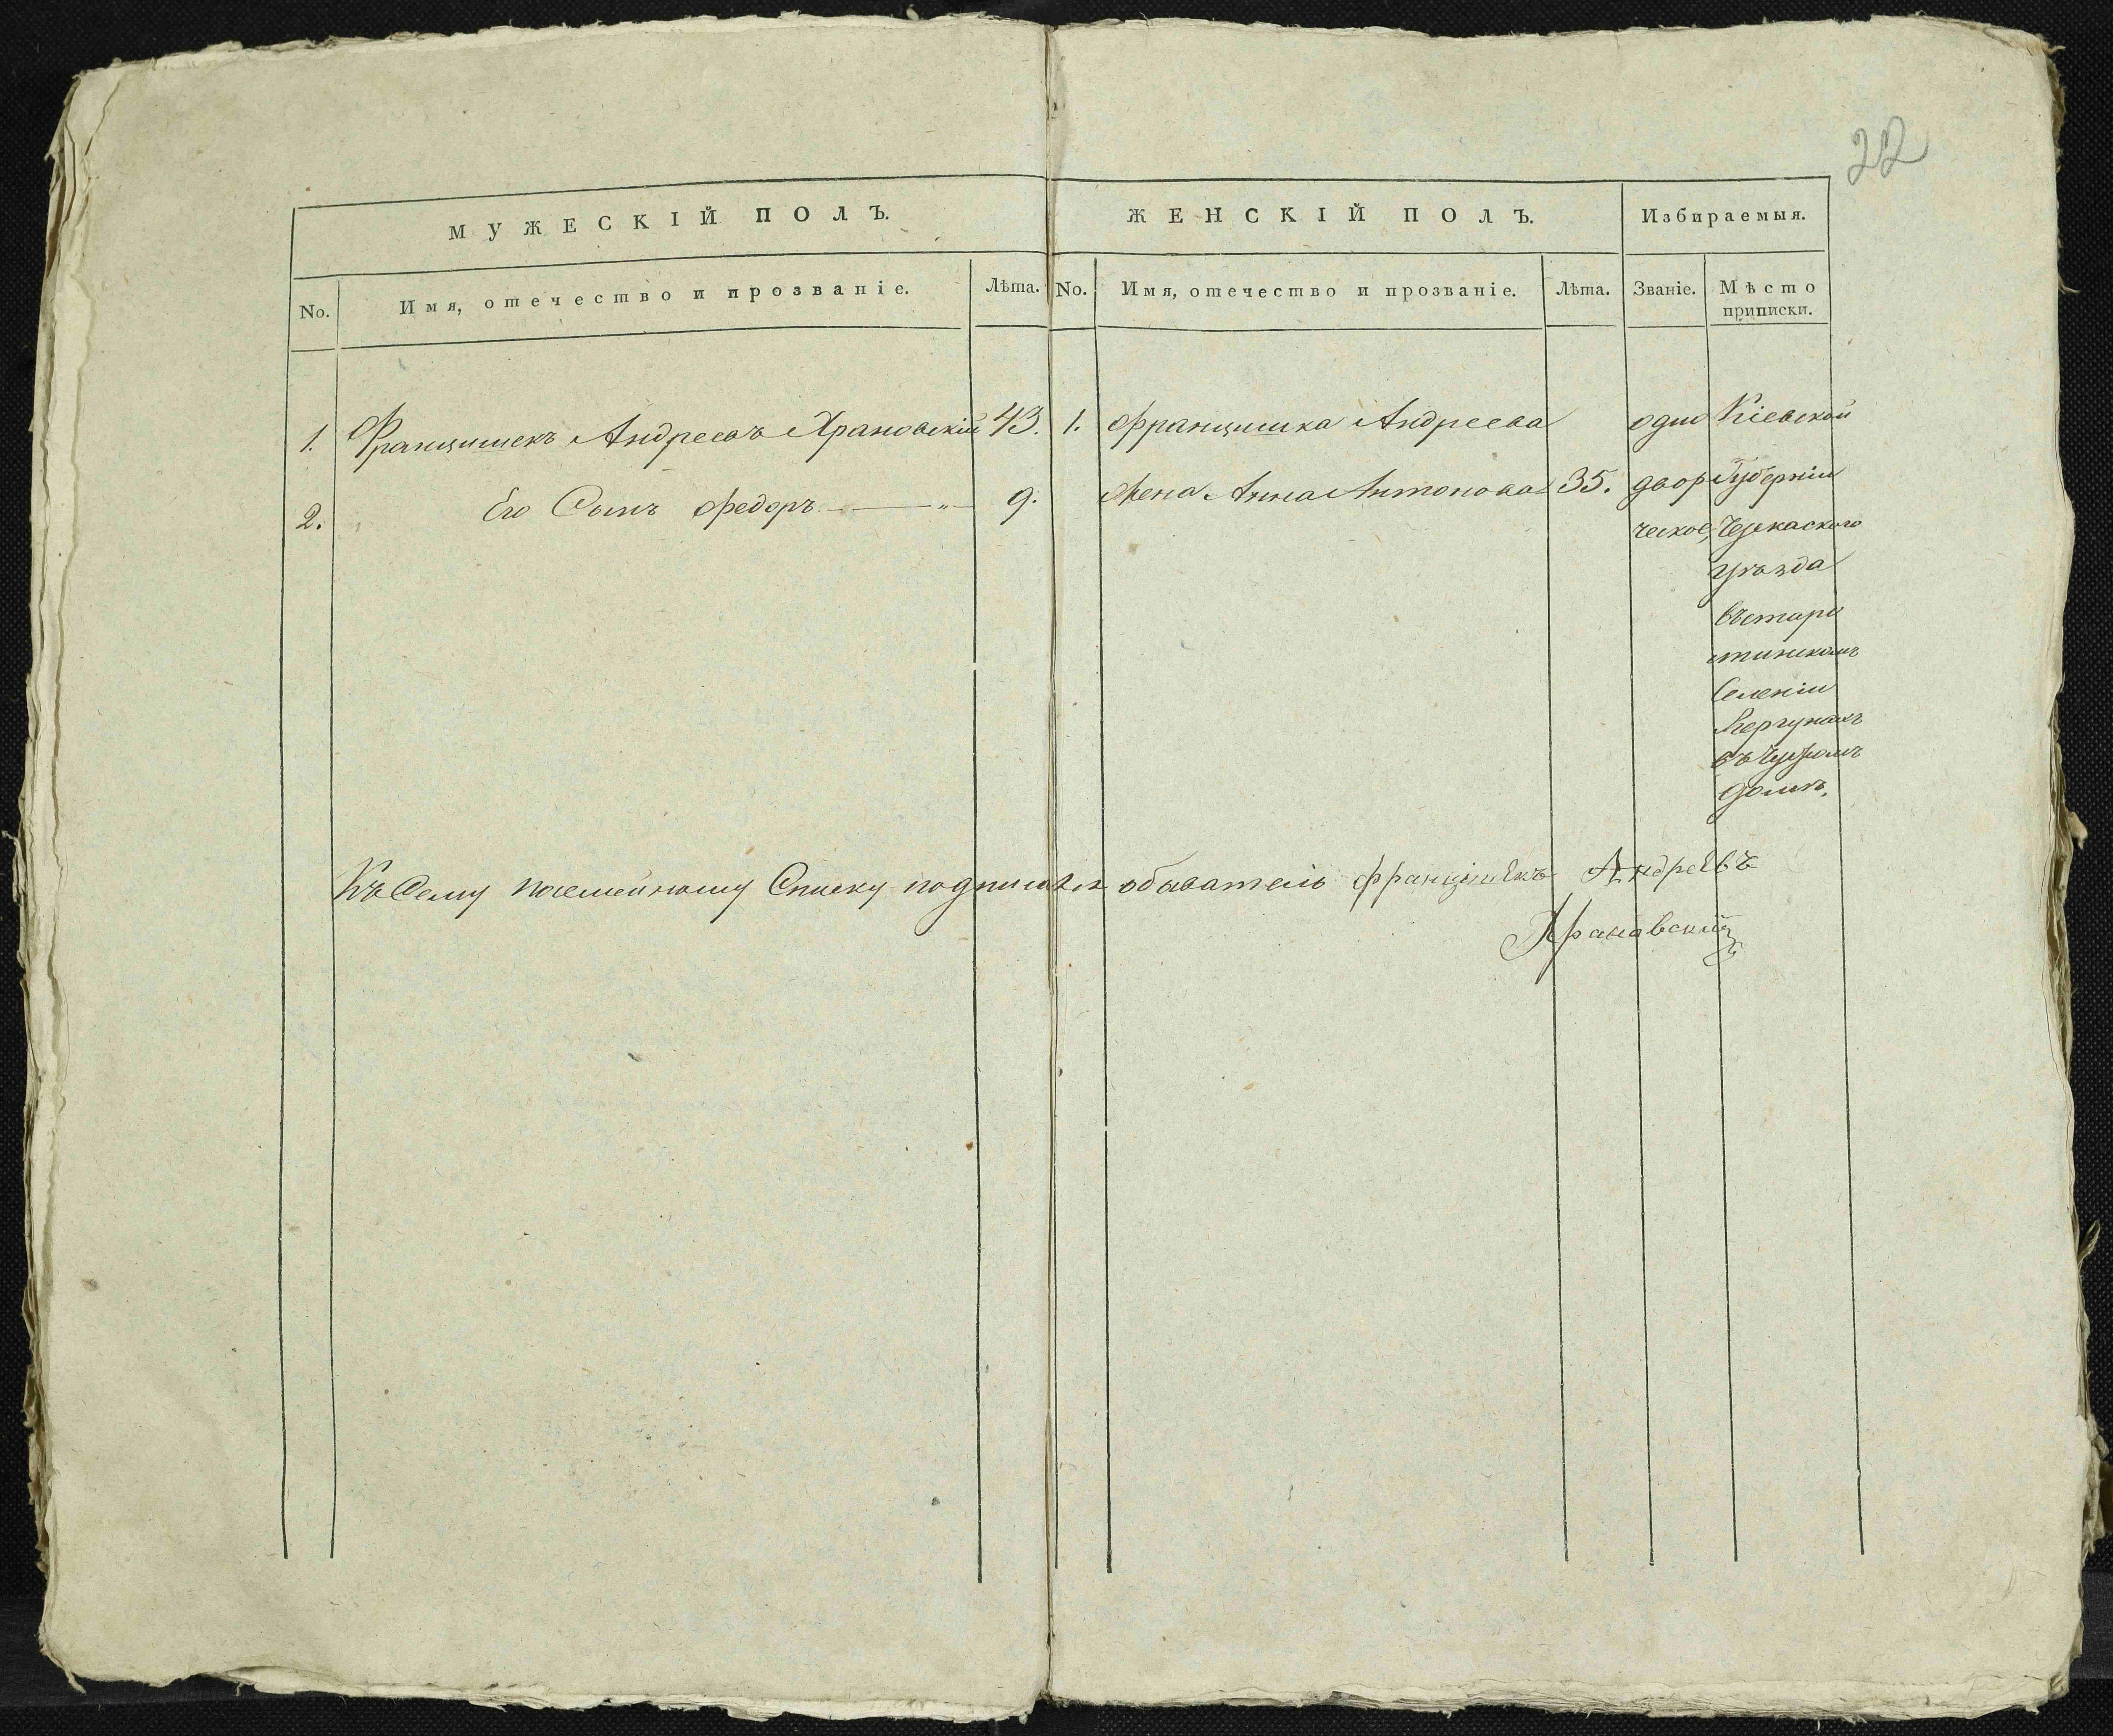 22
МУЖЕСКІЙ ПОЛЪ.
No. Имя, отечество и прозваніе. Лѣта.
1. Францишекъ Андреевъ Храновскій 43.
2. Его Сынъ Федоръ — „ — 9.
ЖЕНСКІЙ ПОЛЪ. Избираемыя.
No. Имя, отечество и прозваніе. Лѣта. Званіе. Мѣсто
приписки.
1. Францишка Андреева одно Кіевской
жена Анна Антонова 35. двор Губерніи
ческое, Черкаского
уѣзда
въ старо
стинскомъ
Селеніи
въ Чужомъ
домѣ.
Къ Сему посемейному Списку подписался обыватель Францишекъ Андреевъ
Храновский